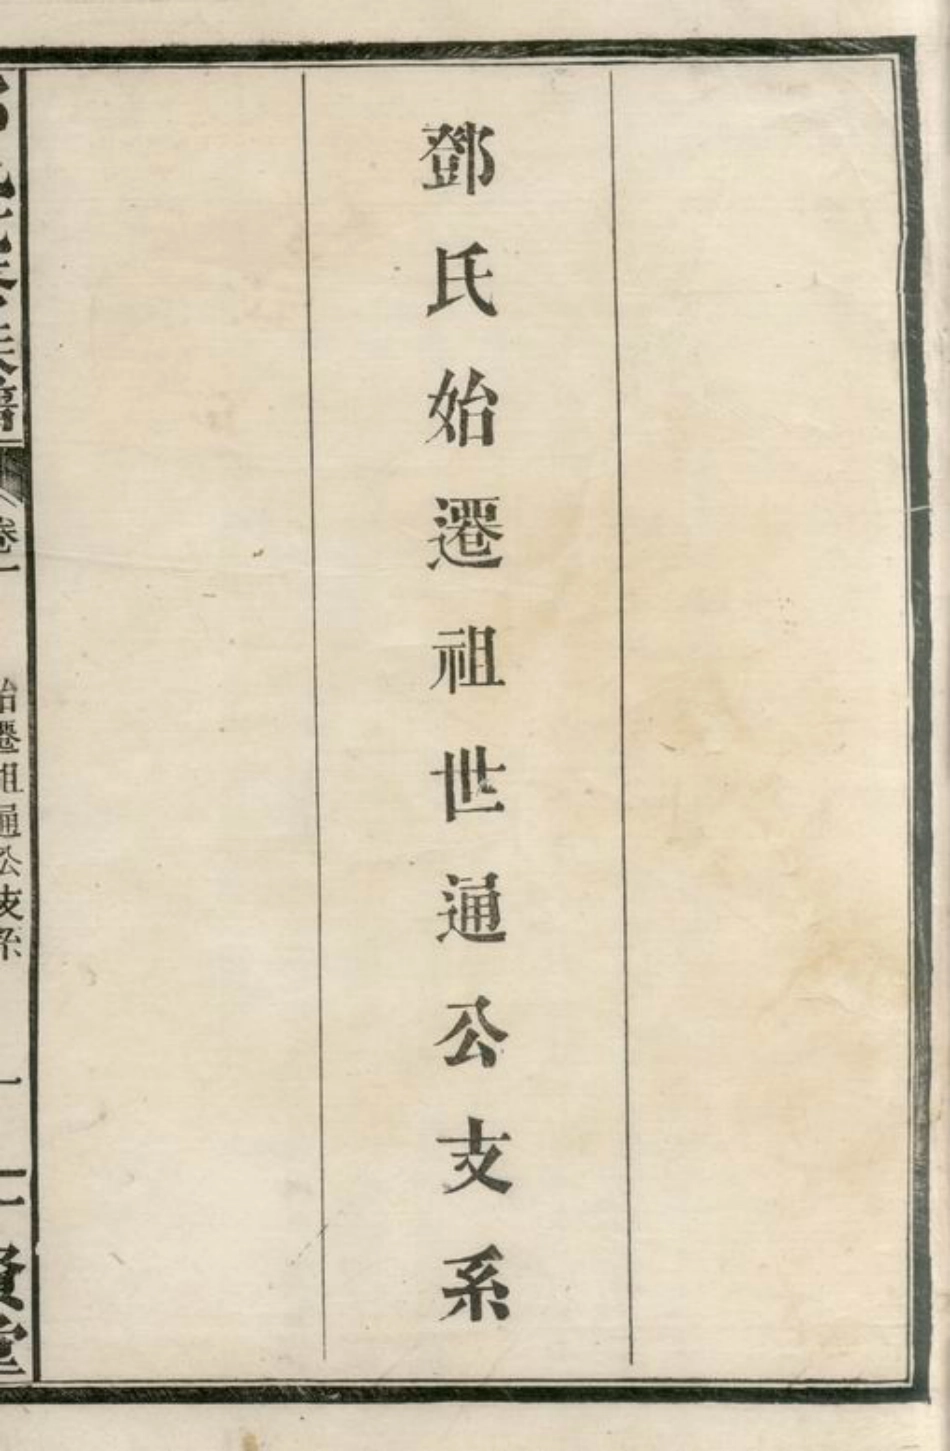 鄧氏始遷祖世通公支系
卷一
始遷祖通公支系
一